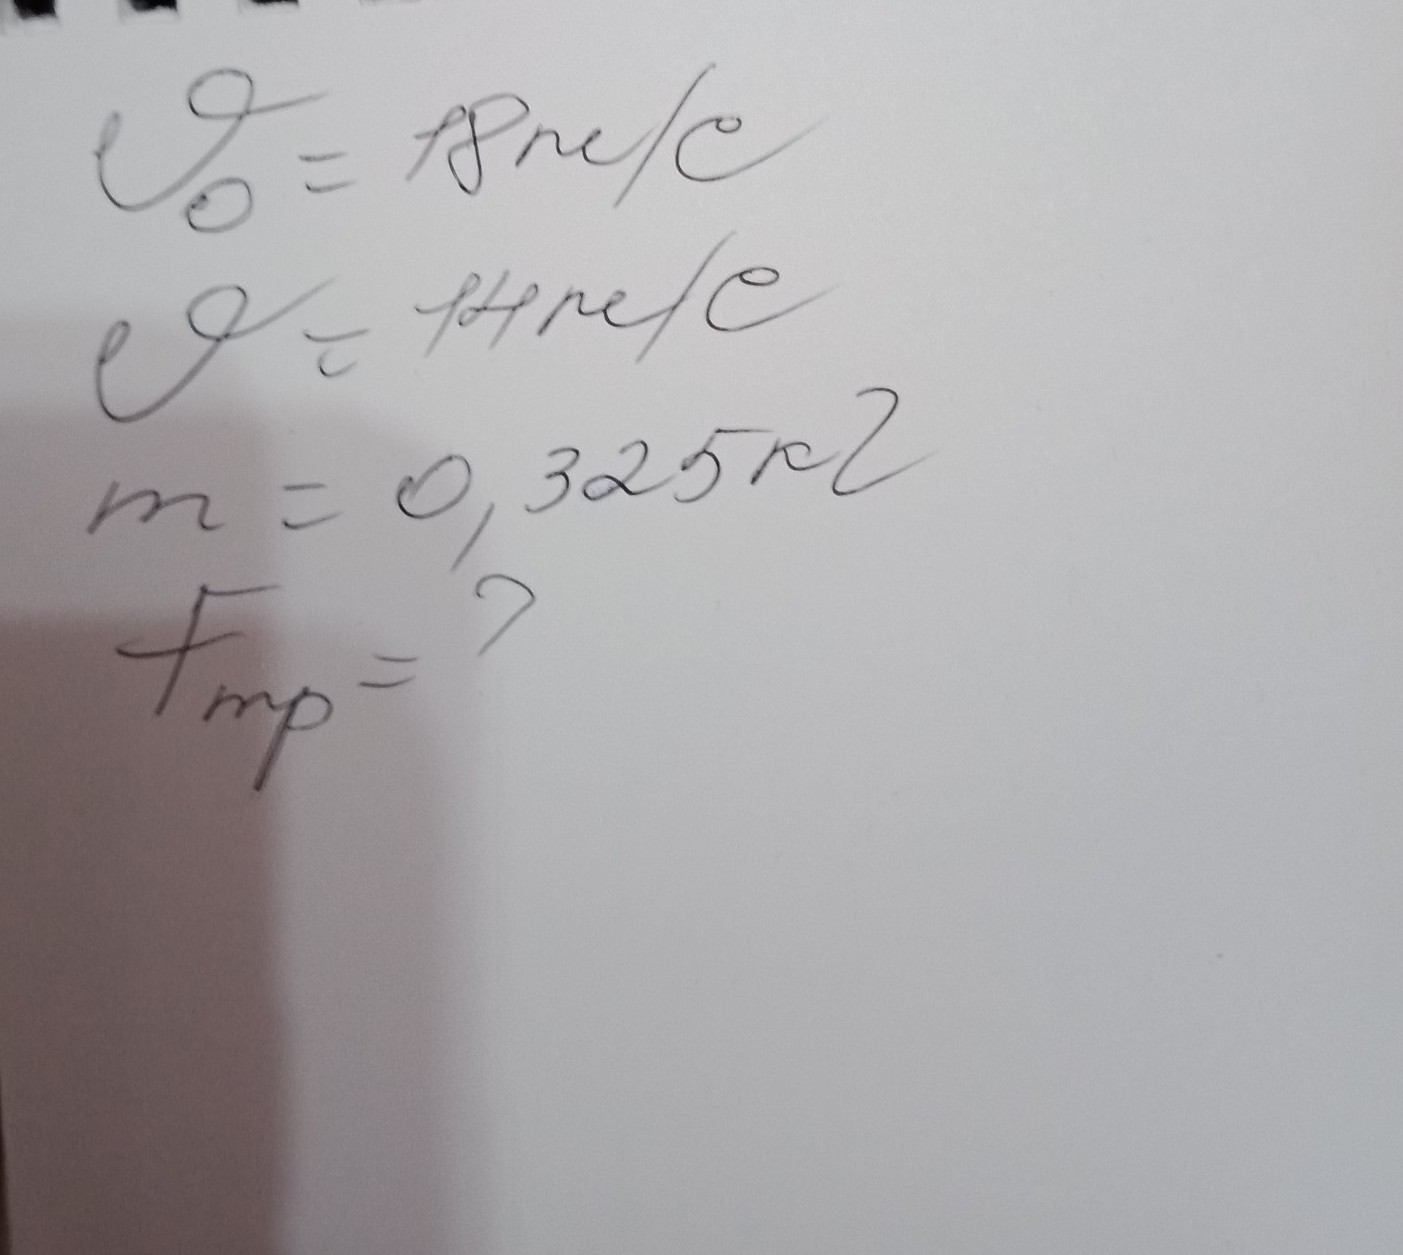 υ₀ = 18 м/с
υ = 14 м/с
m = 0,325 кг
Fтр = ?